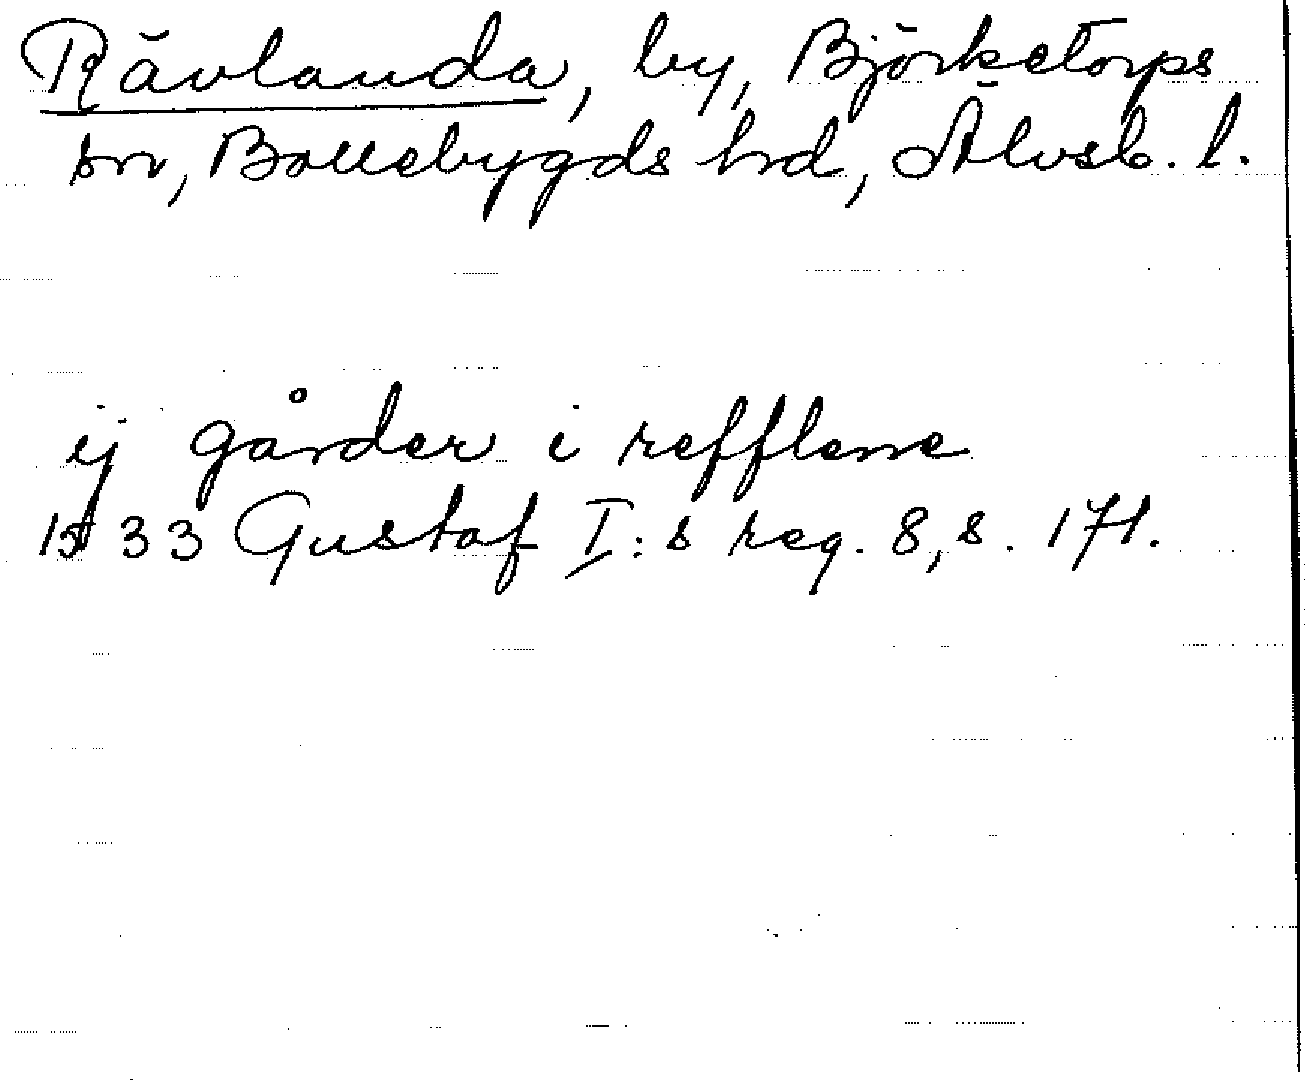 Rävlanda, by, Björketorps
sn, Bollebygds hrd, Älvsb. l.
ij gårder i refflene
1533 Gustaf I:s reg. 8, s. 171.